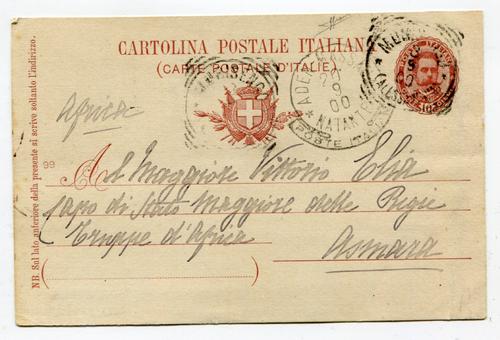 CARTOLINA POSTALE ITALIANA
(CARTE POSTALE D'ITALIE)
Africa
99
Al Maggiore Vittorio Elia
Capo di Stato Maggiore delle Regie
Truppe d'Africa
Asmara
NB. Sul lato anteriore della presente si scrive soltanto l'indirizzo.
POSTE
9
00